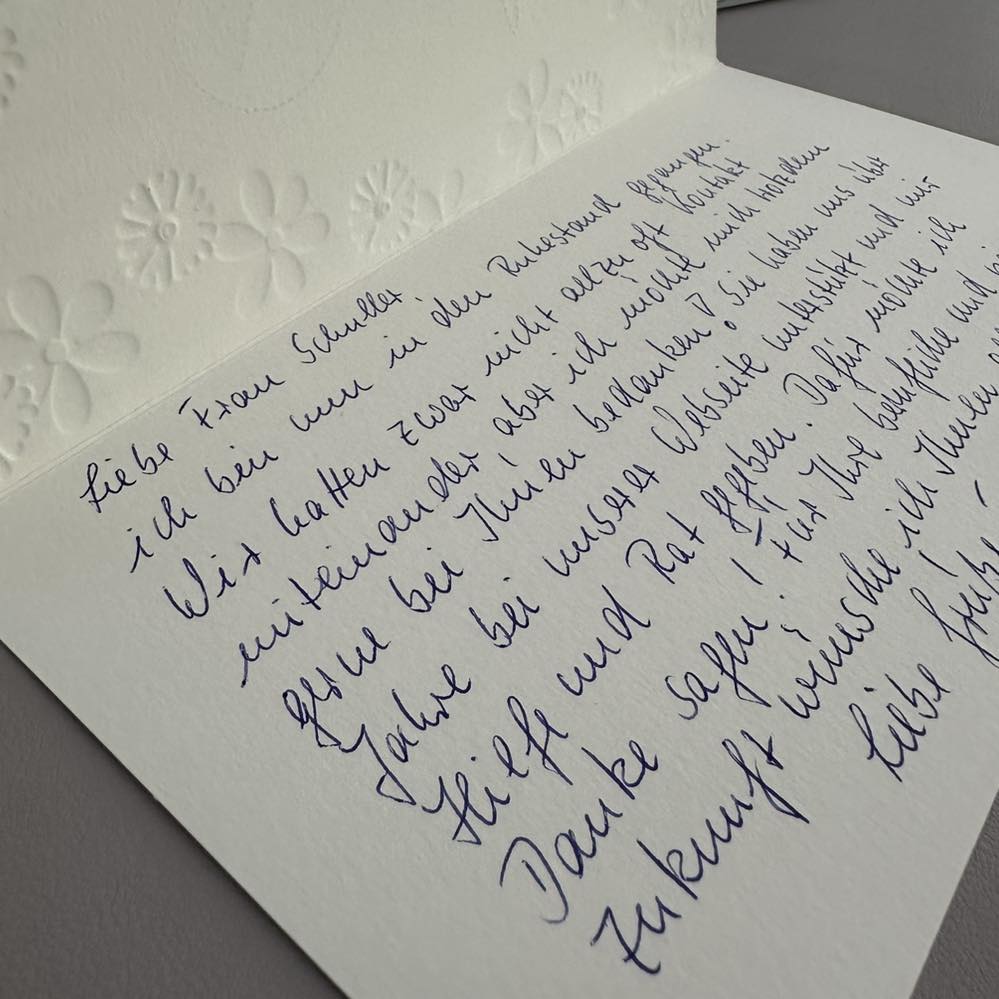 Liebe Frau Schuller
ich bin nun in den Ruhestand gegangen.
Wir hatten zwar nicht allzu oft Kontakt
miteinander aber ich möchte mich trotzdem
gerne bei Ihnen bedanken! Sie haben uns über
Jahre bei unserer Webseite unterstützt und mit
Hilfe und Rat gegeben. Dafür möchte ich
Danke sagen! Für Ihre berufliche und
Zukunft wünsche ich Ihnen
Liebe Grüße